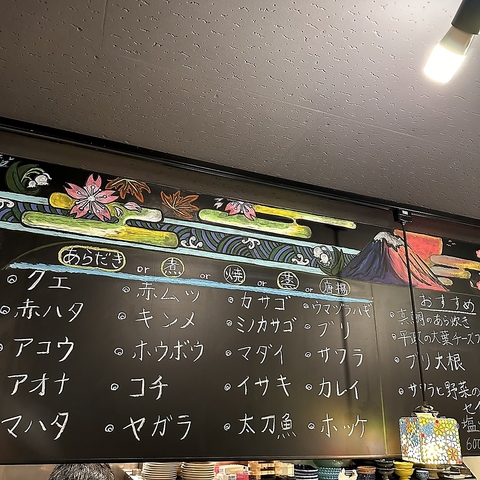 あらだき or 煮 or 焼 or 蒸 or 唐揚
クエ
赤ハタ
アコウ
アオナ
マハタ
赤ムツ
キンメ
ホウボウ
コチ
ヤガラ
カサゴ
ミノカサゴ
マダイ
イサキ
太刀魚
ウマヅラハギ
ブリ
サワラ
カレイ
ホッケ
おすすめ
真鯛のあら炊き
平政の大葉チーズフ
ブリ大根
サワラと野菜の